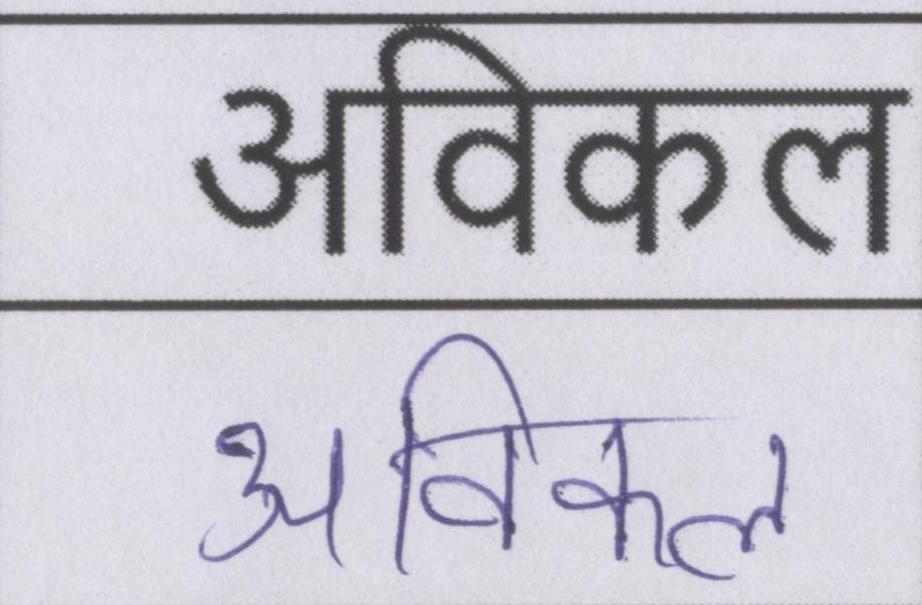 अविकल
अविकल